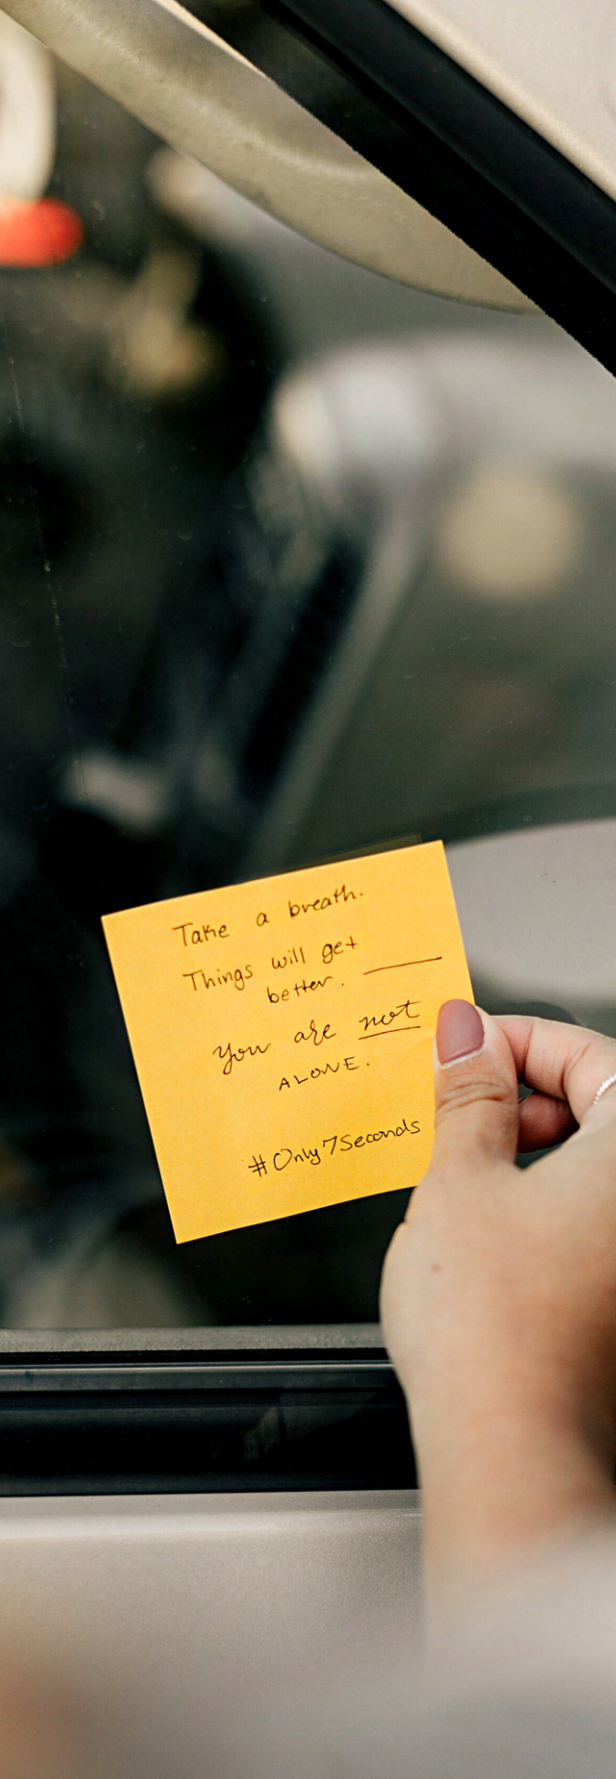 Take a breath.
Things will get
better.
You are not
ALONE.
#Only7Seconds